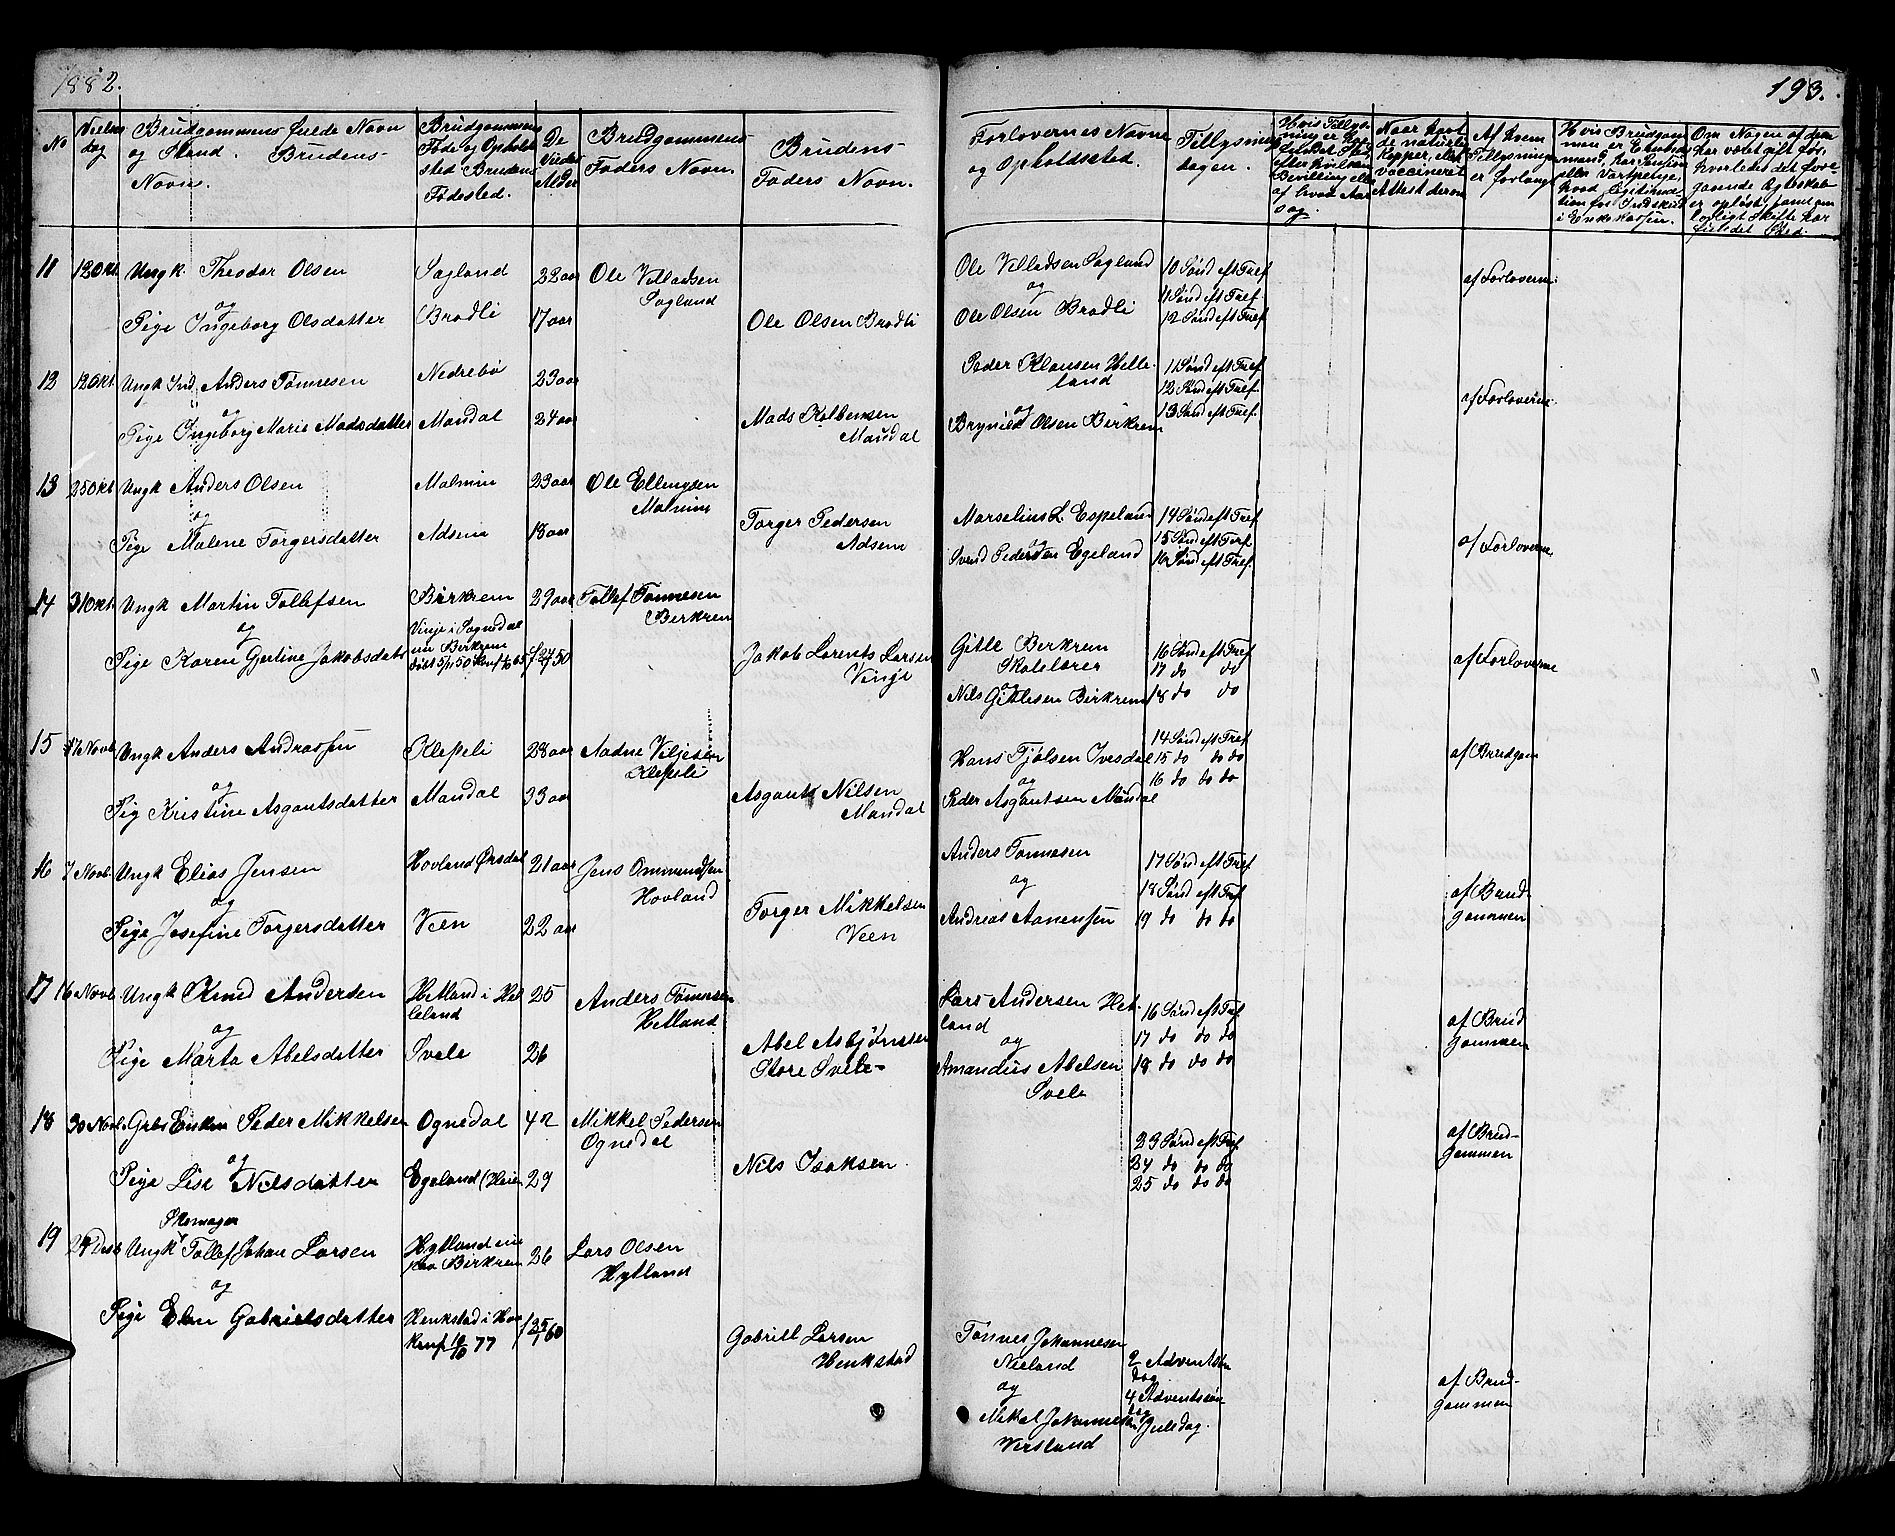 1882.
193.
No
Vielses dag
Brudgommens fulde Navn
og Stand. Brudens
Navn.
Brudgommens
Føde og Opholds
sted Brudens
Fødested.
De
Viedes
Alder
Brudgommens
Faders Navn.
Brudens
Faders Navn.
Forlovernes Navne
og Opholdssted.
Tillysnings
dagen.
Naar havt
de naturlige
Kopper, eller
vaccineret
Attest derom
Af hvem
Tillysning
er forlangt
11 12 Okt Ungk. Theodor Olsen Sagland 22 aar Ole Villadsen
Sagland
Ole Villadsen Sagland 10 Sønd eft Tref
af Forloverne
og
og 11 Sønd eft Tref
Pige Ingeborg Olsdatter Bradli 17 aar Ole Olsen Bradli
Ole Olsen Bradli 12 Sønd eft Tref
12 12 Okt Ungk Ind. Anders Tønnesen Nedrebø 23 aar
Peder Klausen Helle-
land
11 Sønd eft Tref
12 Sønd eft Tref
af Forloverne
og
Pige Ingeborg Marie Madsdatter Mandal 24 aar Mads
Mandal
og 13 Sønd eft Tref
Olsen Birkrem
13 25 Okt Ungk Anders Olsen Malmin 23 aar Ole Ellingsen
Malmin
Marselius L. Espeland 14 Sønd eft Tref
og
Pige Malene Torgersdatter Adsem 18 aar Torger Pedersen
Adsem
og 15 Sønd eft Tref
Svend Pedersen Egeland 16 Sønd eft Tref
af Forloverne
14 31 Okt Ungk Martin Tollefsen Birkrem 29 aar Tollef Tønnesen
Birkrem
og
Vinje i Sogndal
nu Birkrem
Pige Karen Gjertine Jakobsdatr Jakob Lorents Larsen
Vinje
Gitle Birkrem
Skolelærer
og
Nils Gitlesen Birkrem
16 Sønd eft Tref
17 do do
18 do do
af Forloverne
15 Novb Ungk Anders Andreassen Klepeli 28 aar Aadne Viljesen
Klepeli
og
Pig Kristine Asgautsdatter Mandal 33 aar Asgaut Nilsen
Mandal
Hans Tjølsen Ivesdal
og
Peder Asgautsen Mandal
14 Sønd eft Tref
15 do do do
16 do do do
af Brudgom
16 7 Novb Ungk Elias Jensen Hovland Ørsdal 21 aar Jens Ommundsen
Hovland
og
Pige Josefine Torgersdatter Veen 22 aar Torger Mikkelsen
Veen
Anders Tønnesen
og
Andreas Aanensen
17 Sønd eft Tref
18 Sønd eft Tref
19 do do do
af Brud-
gommen
17 16 Novb Ungk Knud Andersen Hetland i Hel
leland
25 Anders Tønnesen
Hetland
og
Pige Marta Abelsdatter Svele 26 Abel Asbjørnsen
Store Svele
Lars Andersen Het-
land
og
Amandus Abelsen
Svele
16 Sønd eft Tref
17 do do do
18 do do do
af Brud
gommen
18 30 Novb Peder Mikkelsen Ognedal 42 Mikkel Pedersen
Ognedal
og
Pige Lise Nilsdatter Egeland (Heien 29 Nils Isaksen
23 Sønd eft Tref
24 do do do
25 do do do
af Brud-
gommen
Skomager
19 Ungk Tollef Johan Larsen Hytland nu
paa Birkrem
26 Lars Olsen
Hytland
og
Pige Elen Gabrielsdatter Henkstad i
Gabriel Larsen
Henkstad
Tønnes Johannesen
Nieland
og
Mikal Johannesen
Versland
2 Adventsøn
dag
4 Adventsøn
dag
Juledag.
af Brud-
gommen